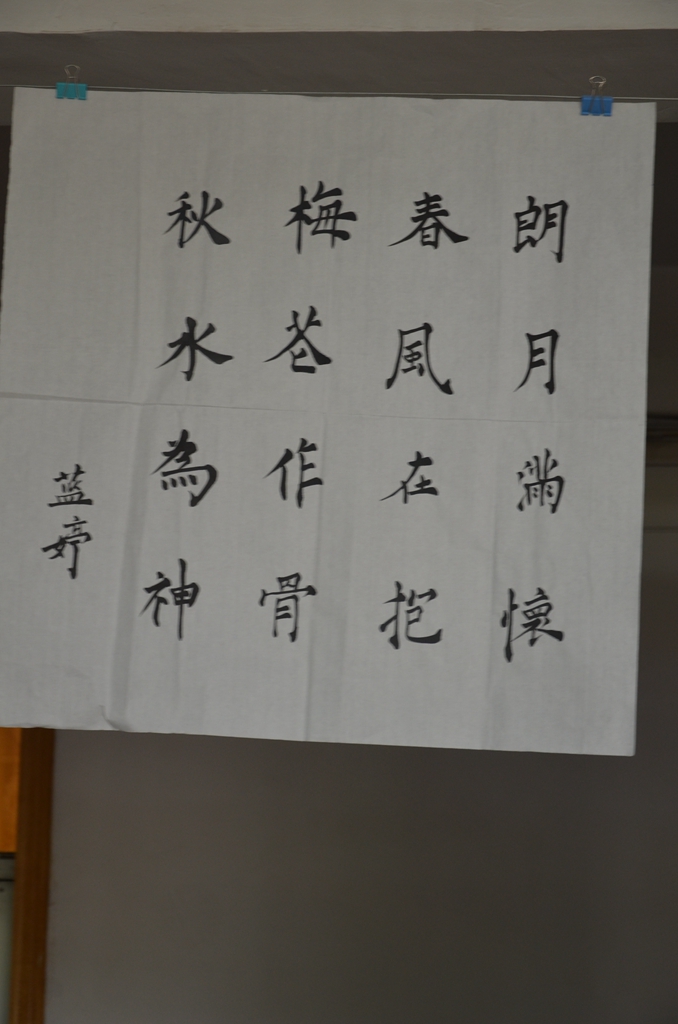 朗月滿懷
春風在抱
梅花作骨
秋水為神
蓝婷